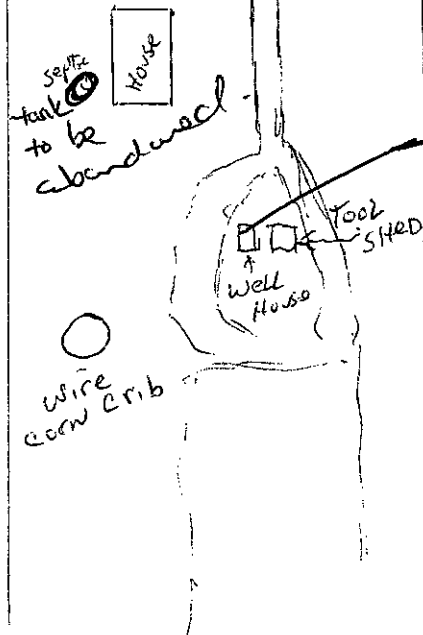 House
septic
tank
to be
abandoned
TOOL
SHED
Well
House
wire
corn crib